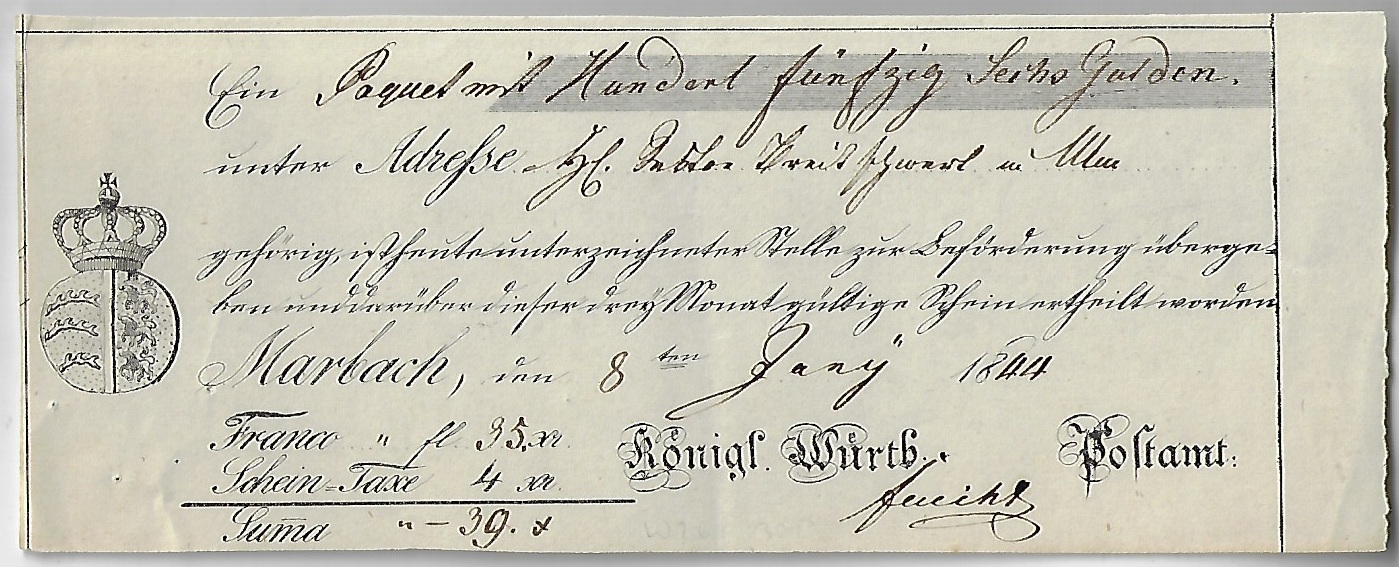 Ein Paquet mit Hundert fünfzig Sechs Gulden.
unter Adresse H. Breitschwert in Ulm
gehörig, ist heute unterzeichneter Stelle zur Beförderung überge-
ben und darüber dieser drey Monat gültige Schein ertheilt worden
Marbach, den 8ten Jany 1844
Franco " fl. 35. xr.
Schein-Taxe 4 xr.
Königl. Württb. Postamt:
Suma " - 39. x